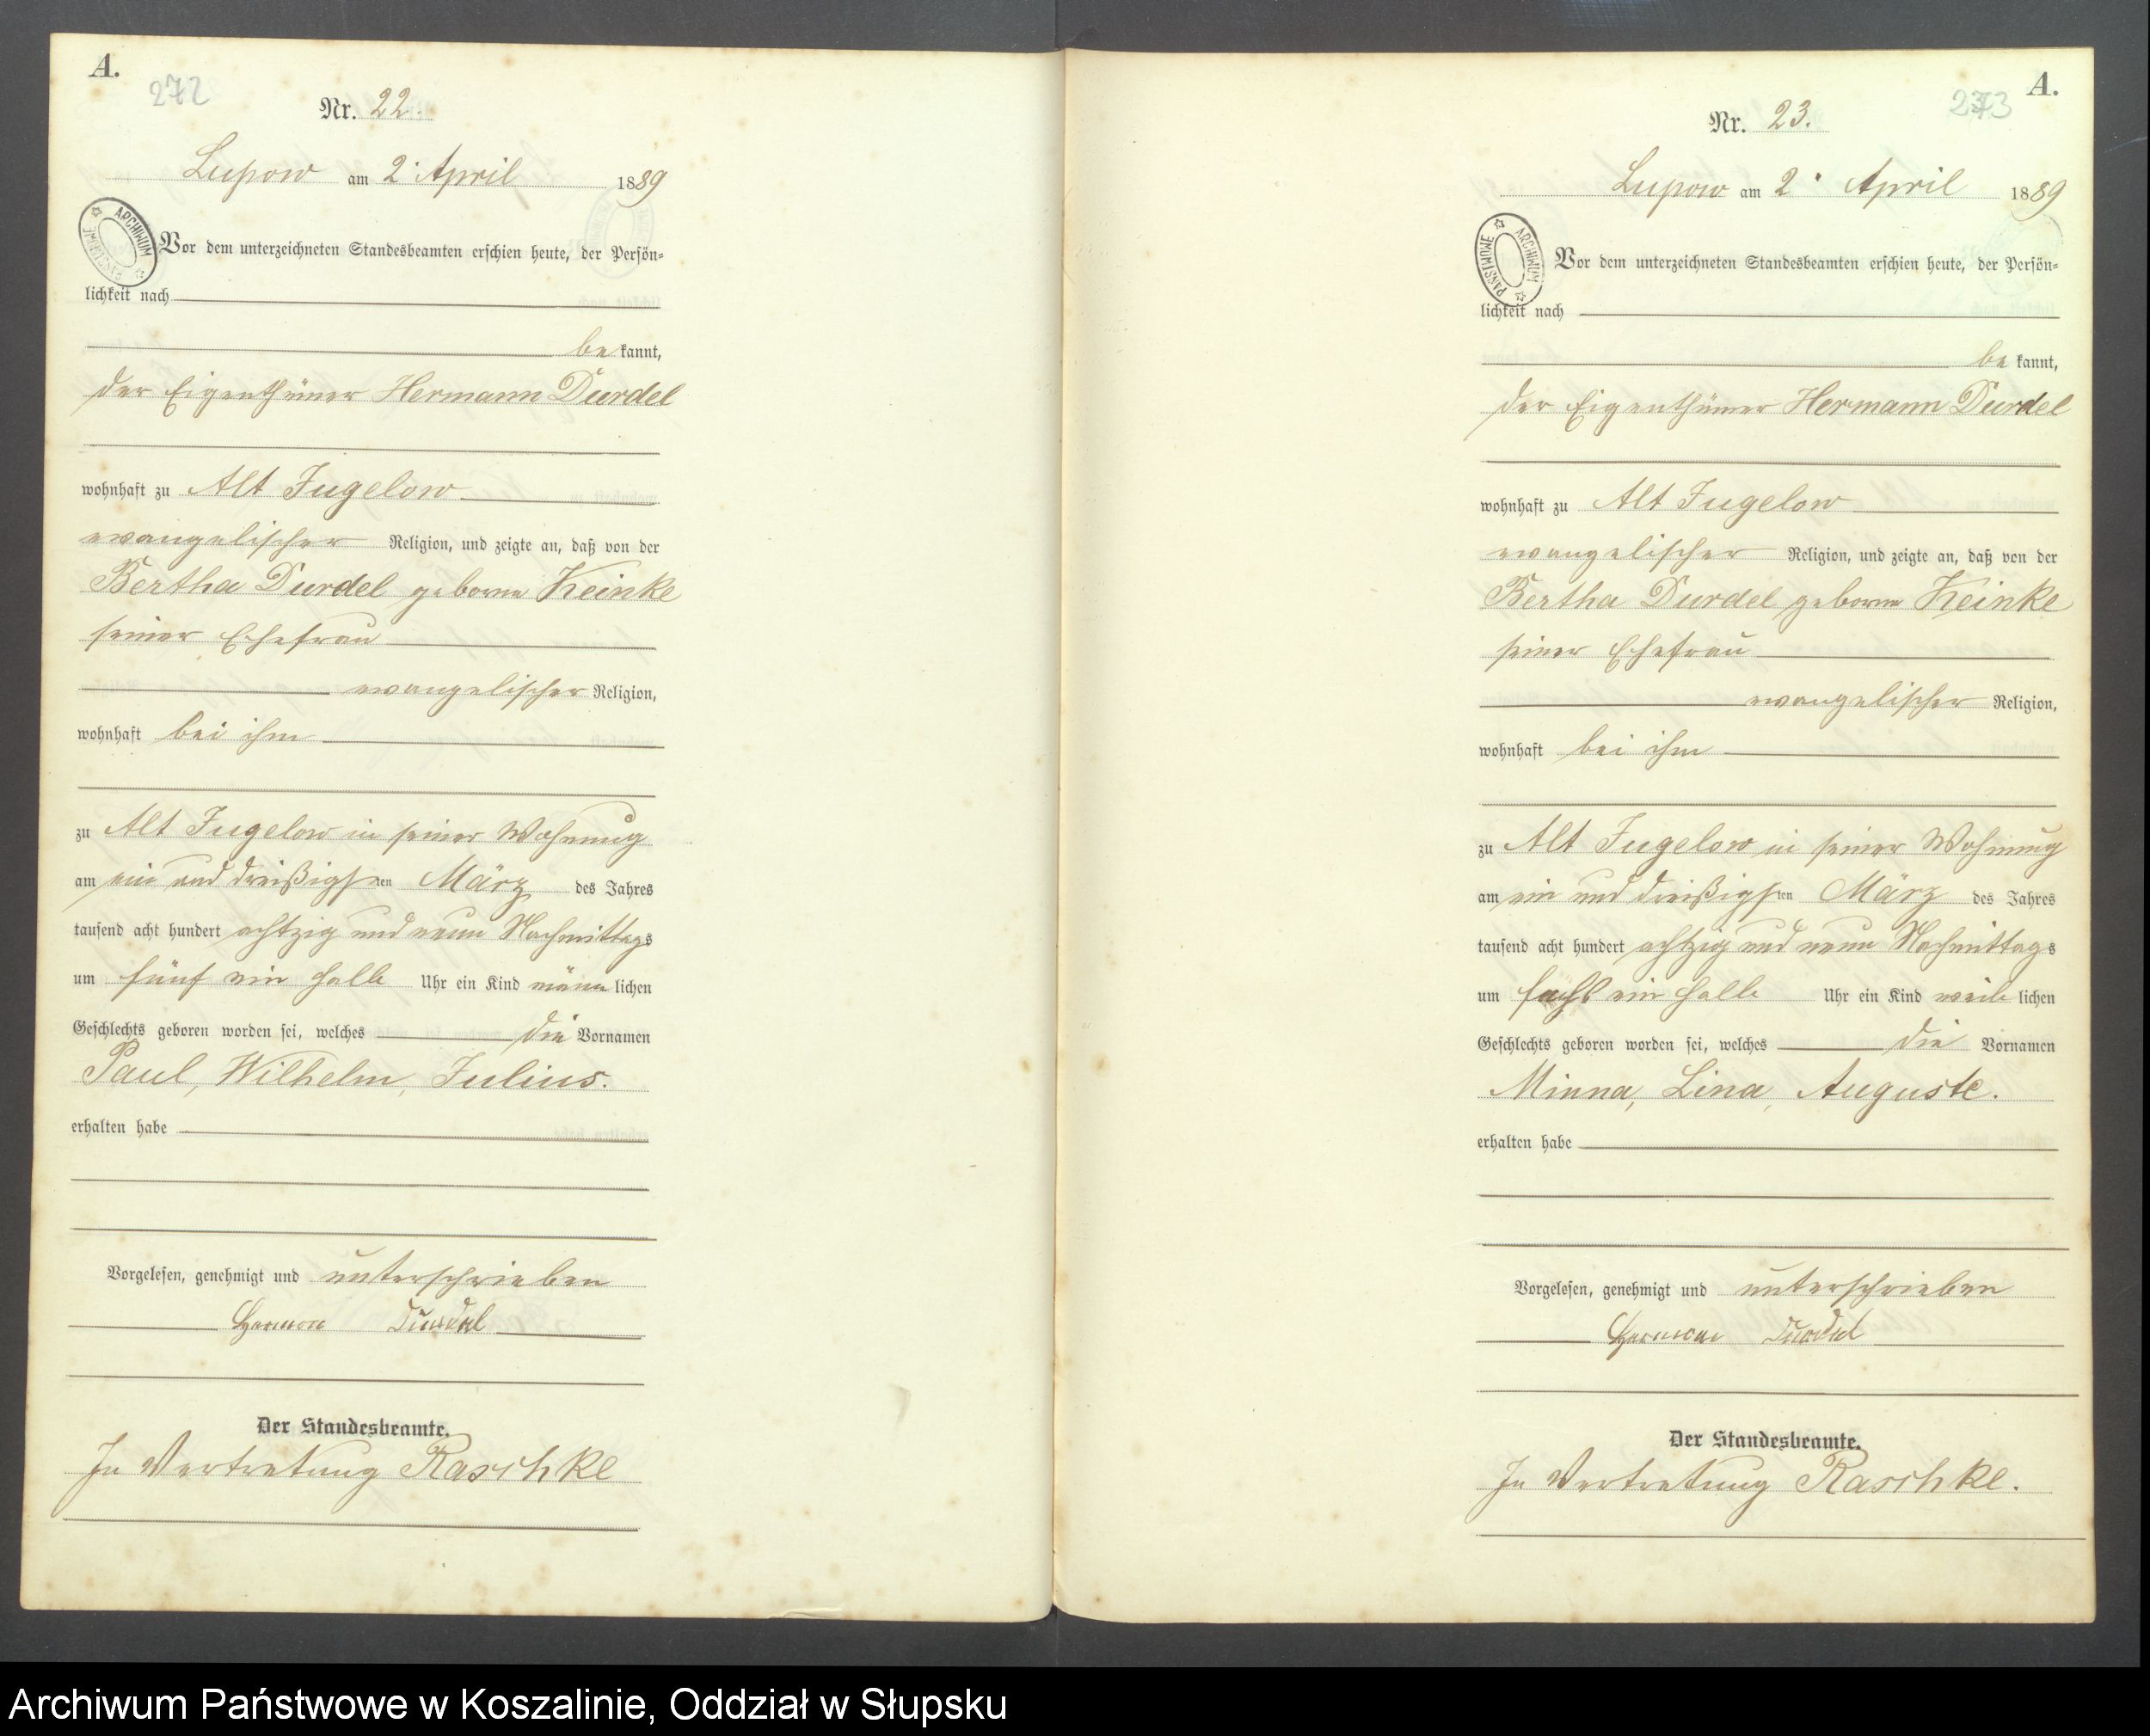 A.
272
Nr. 22.
Lupow am 2. April 1889
ARCHIWUM PAŃSTWOWE
Vor dem unterzeichneten Standesbeamten erschien heute, der Persön-
lichkeit nach
be kannt,
der Eigenthümer Hermann Durdel
wohnhaft zu Alt Jugelow
evangelischer Religion, und zeigte an, daß von der
Bertha Durdel geborne Keinke
seiner Ehefrau
evangelischer Religion,
wohnhaft bei ihm
zu Alt Jugelow in seiner Wohnung
am ein und dreißigsten März des Jahres
tausend acht hundert achtzig und neun Nachmittags
um fünf ein halb Uhr ein Kind männlichen
Geschlechts geboren worden sei, welches die Vornamen
Paul, Wilhelm, Julius.
erhalten habe
Vorgelesen, genehmigt und unterschrieben
Herman Durdel
Der Standesbeamte.
In Vertretung Raschke
A.
273
Nr. 23.
Lupow am 2. April 1889
ARCHIWUM PAŃSTWOWE
Vor dem unterzeichneten Standesbeamten erschien heute, der Persön-
lichkeit nach
be kannt,
der Eigenthümer Hermann Durdel
wohnhaft zu Alt Jugelow
evangelischer Religion, und zeigte an, daß von der
Bertha Durdel geborne Keinke
seiner Ehefrau
evangelischer Religion,
wohnhaft bei ihm
zu Alt Jugelow in seiner Wohnung
am ein und dreißigsten März des Jahres
tausend acht hundert achtzig und neun Nachmittags
um sechs ein halb Uhr ein Kind weiblichen
Geschlechts geboren worden sei, welches die Vornamen
Minna, Lina, Auguste.
erhalten habe
Vorgelesen, genehmigt und unterschrieben
Herman Durdel
Der Standesbeamte.
In Vertretung Raschke.
Archiwum Państwowe w Koszalinie, Oddział w Słupsku